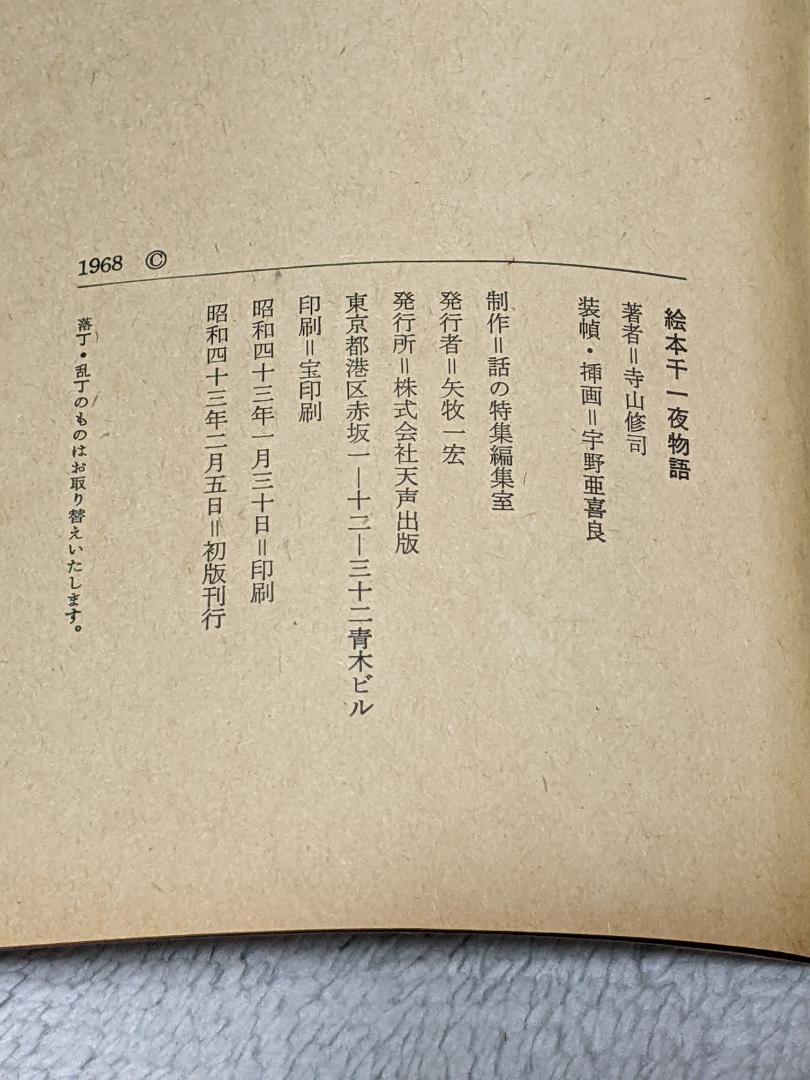 絵本千一夜物語
著者＝寺山修司
装幀・挿画＝宇野亜喜良
制作＝話の特集編集室
発行者＝矢牧一宏
発行所＝株式会社天声出版
東京都港区赤坂一―十二―三十二青木ビル
印刷＝宝印刷
昭和四十三年一月三十日＝印刷
昭和四十三年二月五日＝初版刊行
1968 ©
落丁・乱丁のものはお取り替えいたします。